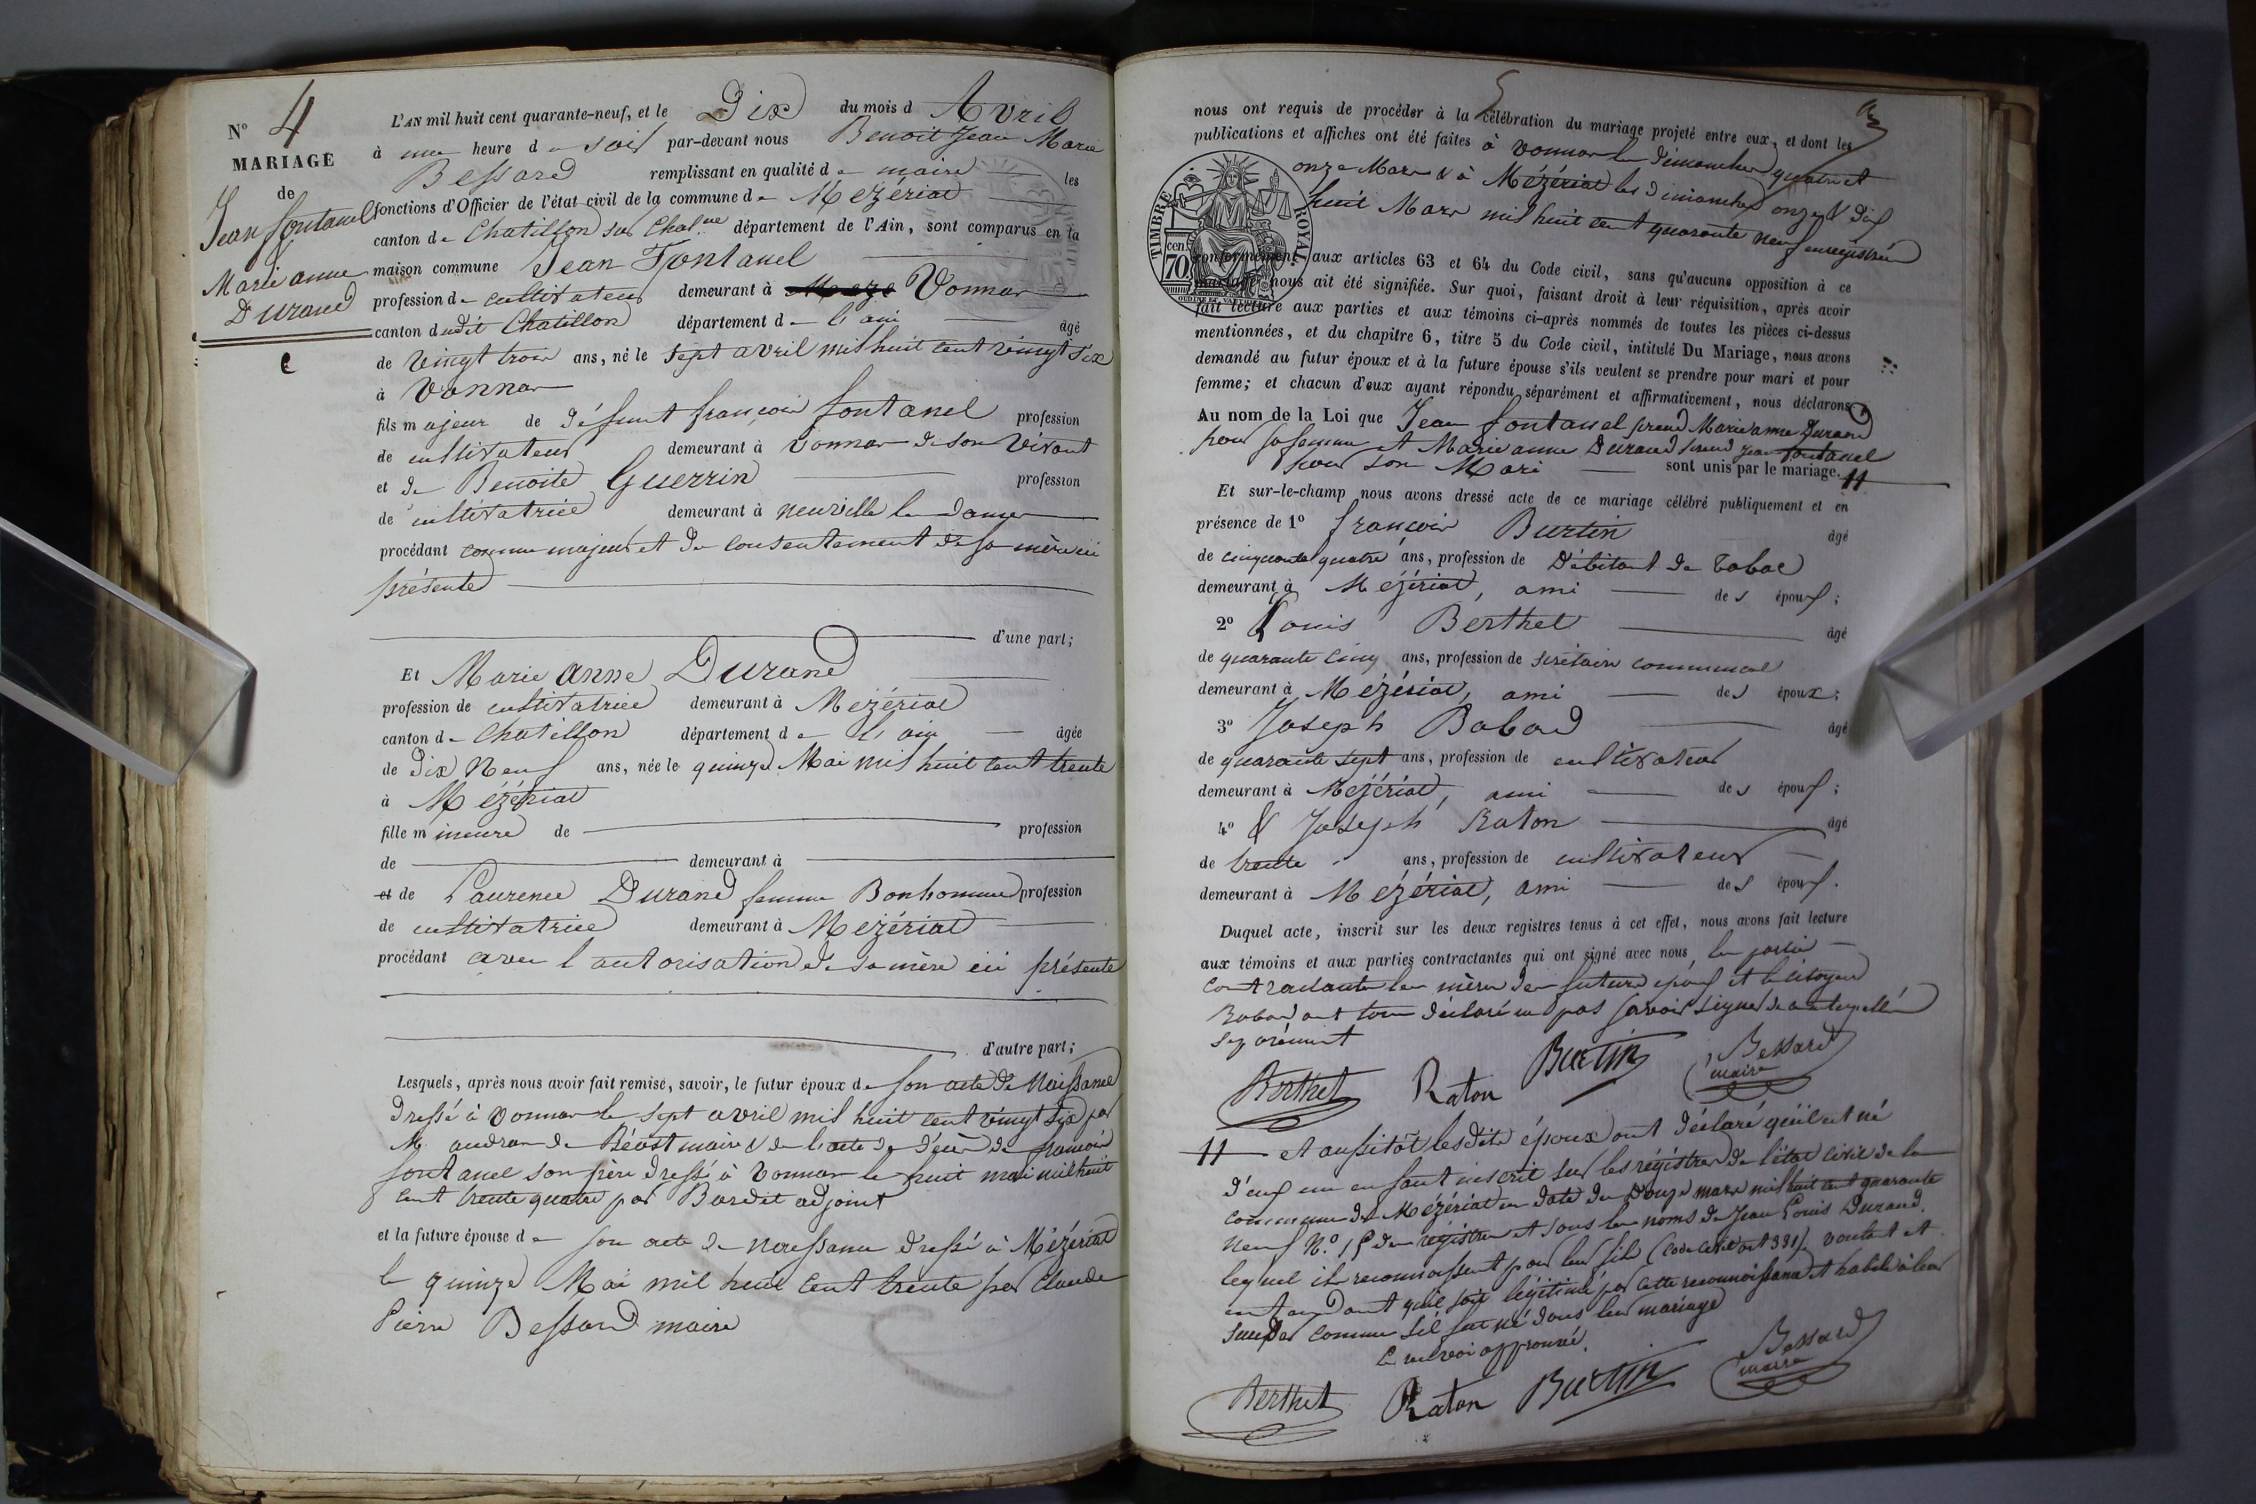 N° 4
MARIAGE
de
Jean fontanel
Marie anne
Durand
L'AN mil huit cent quarante-neuf, et le Dix du mois d Avril
à une heure de soir par-devant nous Benoit Jean Marie
Bessard remplissant en qualité de maire les
fonctions d'Officier de l'état civil de la commune de Mézériat
canton de Chatillon sur Chal.ne département de l'Ain, sont comparus en la
maison commune Jean Fontanel
profession de cultivateur demeurant à Meze Vonnas
canton dudit Chatillon département de l'ain âgé
de vingt trois ans, né le sept avril mil huit cent vingt six
à Vonnas
fils majeur de défunt françois fontanel profession
de cultivateur demeurant à vonnas de son vivant
et de Benoite Guerrin profession
de cultivatrice demeurant à neuville les dames
procédant comme majeur et du consentement de sa mère ici
présente
d'une part;
Et Marie anne Durand
profession de cultivatrice demeurant à Mézériat
canton de Chatillon département de l'ain âgée
de Dix Neuf ans, née le quinze Mai mil huit cent trente
à Mézériat
fille mineure de profession
de demeurant à
et de Laurence Durand femme Bonhomme profession
de cultivatrice demeurant à Mézériat
procédant avec l'autorisation de sa mère ici présente
d'autre part;
Lesquels, après nous avoir fait remise, savoir, le futur époux de son acte de Naissance
dressé à vonnas le sept avril mil huit cent vingt six par
M. audran de Béost maire & de l'acte de décès de françois
fontanel son père dressé à Vonnas le huit mai mil huit
cent trente quatre par Bardet adjoint
et la future épouse de son acte de naissance dressé à Mézériat
le quinze Mai mil huit cent trente par Claude
Pierre Bessard maire
nous ont requis de procéder à la célébration du mariage projeté entre eux, et dont les
publications et affiches ont été faites à vonnas les dimanches quatre et
onze Mars & à Mézériat les dimanches onze & dix
huit Mars mil huit cent quarante neuf enregistrés
TIMBRE ROYAL
cen. 70
conformément aux articles 63 et 64 du Code civil, sans qu'aucune opposition à ce
mariage nous ait été signifiée. Sur quoi, faisant droit à leur réquisition, après avoir
fait lecture aux parties et aux témoins ci-après nommés de toutes les pièces ci-dessus
mentionnées, et du chapitre 6, titre 5 du Code civil, intitulé Du Mariage, nous avons
demandé au futur époux et à la future épouse s'ils veulent se prendre pour mari et pour
femme; et chacun d'eux ayant répondu séparément et affirmativement, nous déclarons
Au nom de la Loi que Jean fontanel prend Marie anne Durand
pour sa femme et Marie anne Durand prend Jean fontanel
pour son Mari sont unis par le mariage. 11
Et sur-le-champ nous avons dressé acte de ce mariage célébré publiquement et en
présence de 1° françois Burtin âgé
de cinquante quatre ans, profession de Débitant de Tabac
demeurant à Mézériat, ami des époux;
2° Louis Berthet âgé
de quarante cinq ans, profession de secrétaire communal
demeurant à Mézériat, ami des époux;
3° Joseph Babad âgé
de quarante sept ans, profession de cultivateur
demeurant à Mézériat, ami des époux;
4° & Joseph Raton âgé
de trente ans, profession de cultivateur
demeurant à Mézériat, ami des époux.
Duquel acte, inscrit sur les deux registres tenus à cet effet, nous avons fait lecture
aux témoins et aux parties contractantes qui ont signé avec nous, les parties
contractantes les mères des futurs époux et le citoyen
Babad ont tous déclaré ne pas savoir signer de ce interpellés
séparément
Berthet Raton Burtin Bessard
maire
11 et aussitôt lesdits époux ont déclaré qu'il est né
d'eux un enfant inscrit sur les régistres de l'état civil de la
commune de Mézériat en date du Douze mars mil huit cent quarante
neuf N.° 15 des régistres et sous les noms de Jean Louis Durand.
lequel ils reconnoissent pour leur fils (Code Civil art 331) voulant et
entendant qu'il soit légitimé par cette reconnoissance et habile à leur
succéder comme s'il fut né dans leur mariage
le renvoi approuvé.
Berthet Raton Burtin Bessard
maire